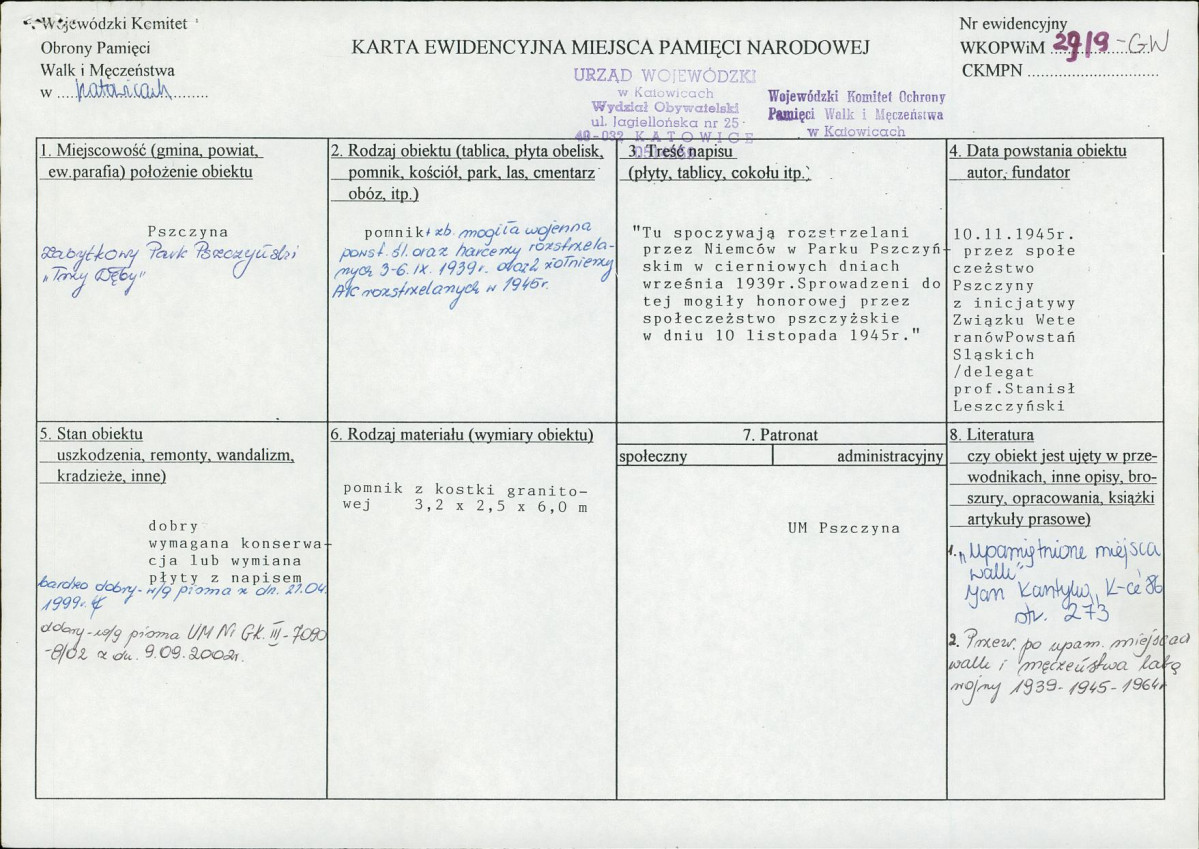 Wojewódzki Komitet
Obrony Pamięci
Walk i Męczeństwa
w ....Katowicach........
KARTA EWIDENCYJNA MIEJSCA PAMIĘCI NARODOWEJ
Nr ewidencyjny
WKOPWiM 29/9-GW
CKMPN ............................
URZĄD WOJEWÓDZKI
w Katowicach
Wydział Obywatelski
ul. Jagiellońska nr 25
40-032 KATOWICE
Wojewódzki Komitet Ochrony
Pamięci Walk i Męczeństwa
w Katowicach
1. Miejscowość (gmina, powiat,
ew.parafia) położenie obiektu
Pszczyna
Zabytkowy Park Pszczyński
"Trzy Dęby"
2. Rodzaj obiektu (tablica, płyta obelisk,
pomnik, kościół, park, las, cmentarz
obóz, itp.)
pomnik + zb. mogiła wojenna
powst. śl. oraz harcerzy rozstrzela-
nych 3-6.IX.1939r. oraz 2 żołnierzy
AK rozstrzelanych w 1945r.
3. Treść napisu
(płyty, tablicy, cokołu itp.)
"Tu spoczywają rozstrzelani
przez Niemców w Parku Pszczyń-
skim w cierniowych dniach
września 1939r.Sprowadzeni do
tej mogiły honorowej przez
społeczeżstwo pszczyżskie
w dniu 10 listopada 1945r."
4. Data powstania obiektu
autor, fundator
10.11.1945r.
przez społe
czeżstwo
Pszczyny
z inicjatywy
Związku Wete
ranówPowstań
Sląskich
/delegat
prof.Stanisł
Leszczyński
5. Stan obiektu
uszkodzenia, remonty, wandalizm,
kradzieże, inne)
dobry
wymagana konserwa-
cja lub wymiana
płyty z napisem
bardzo dobry - w/g pisma z dn. 27.04.
1999r.
dobry - w/g pisma UM Nr GK.III-7090
-8/02 z dn. 9.09.2002r.
6. Rodzaj materiału (wymiary obiektu)
pomnik z kostki granito-
wej 3,2 x 2,5 x 6,0 m
7. Patronat
społeczny
administracyjny
UM Pszczyna
8. Literatura
czy obiekt jest ujęty w prze-
wodnikach, inne opisy, bro-
szury, opracowania, książki
artykuły prasowe)
1. "Upamiętnione miejsca
walk"
Jan Kantyka, K-ce'86
str. 273
2. Przew. po upam. miejscach
walk i męczeństwa lata
wojny 1939-1945-1964r